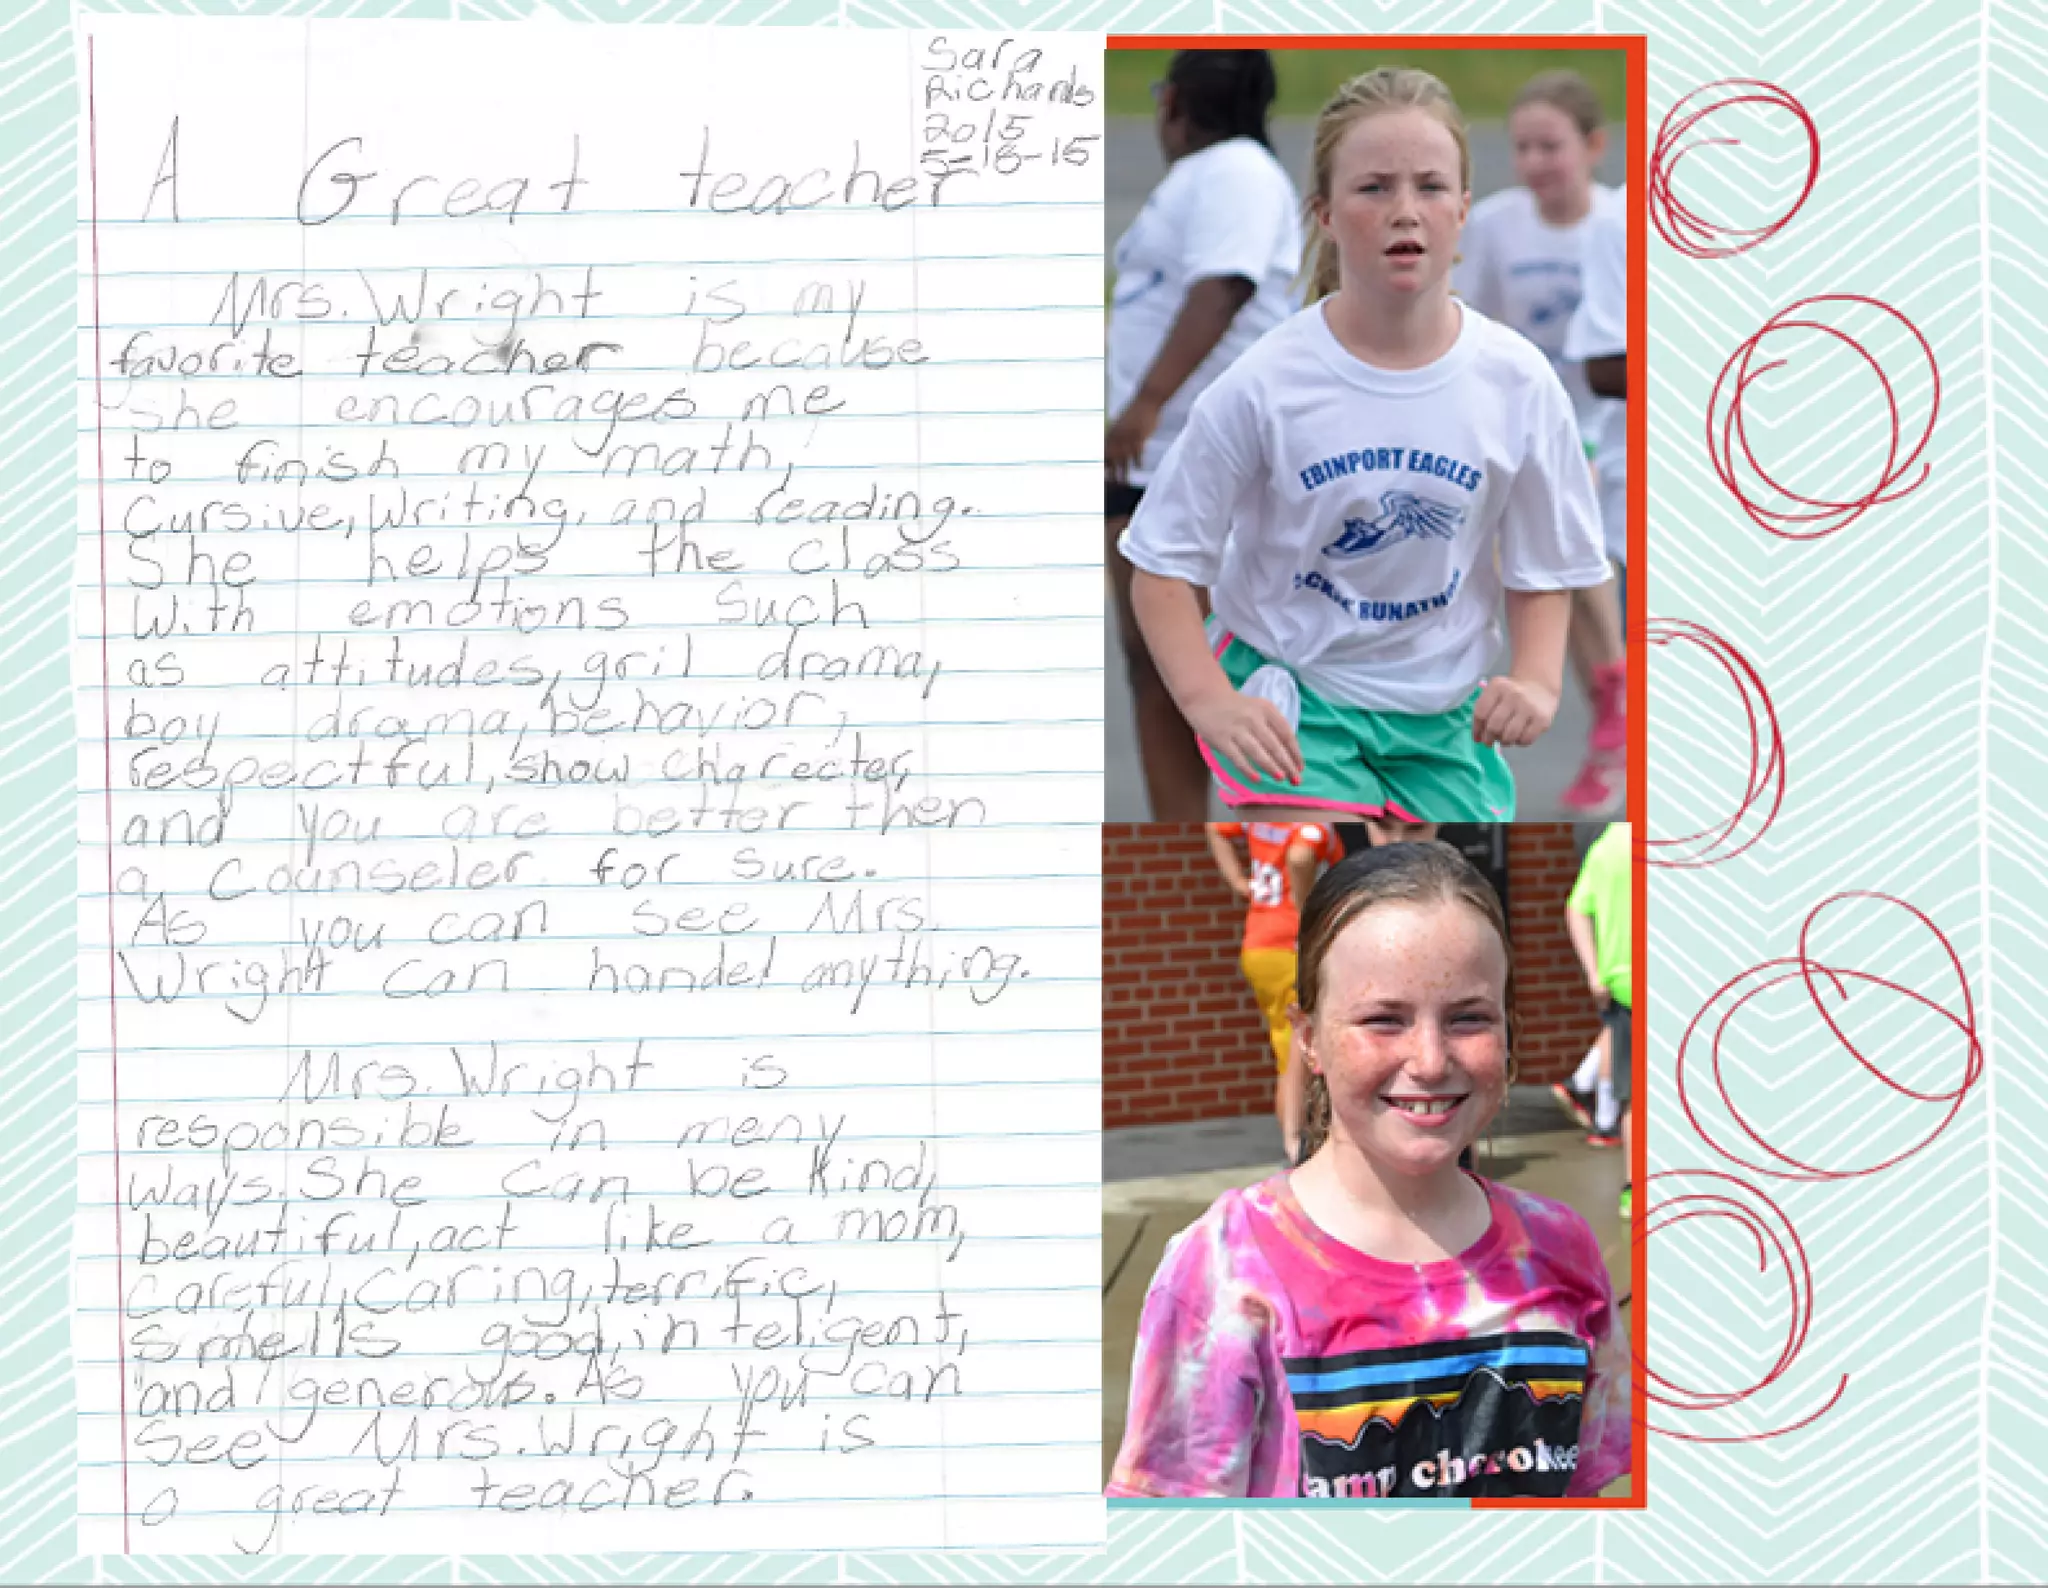 Sara
Richards
2015
5-18-15
A Great teacher
Mrs. Wright is my
favorite teacher because
she encourages me
to finish my math,
Cursive, Writing, and reading.
She helps the class
With emotions such
as attitudes, gril drama,
boy drama, behavior,
respectful, show charecter,
and you are better then
a Counseler for sure.
As you can see Mrs.
Wright can handel anything.
Mrs. Wright is
responsible in meny
ways. She can be kind,
beautiful, act like a mom,
Careful, caring, terrific,
smells good, inteligent,
and generous. As you can
see Mrs. Wright is
a great teacher.
EBINPORT EAGLES
RUNATHON
camp cherokee